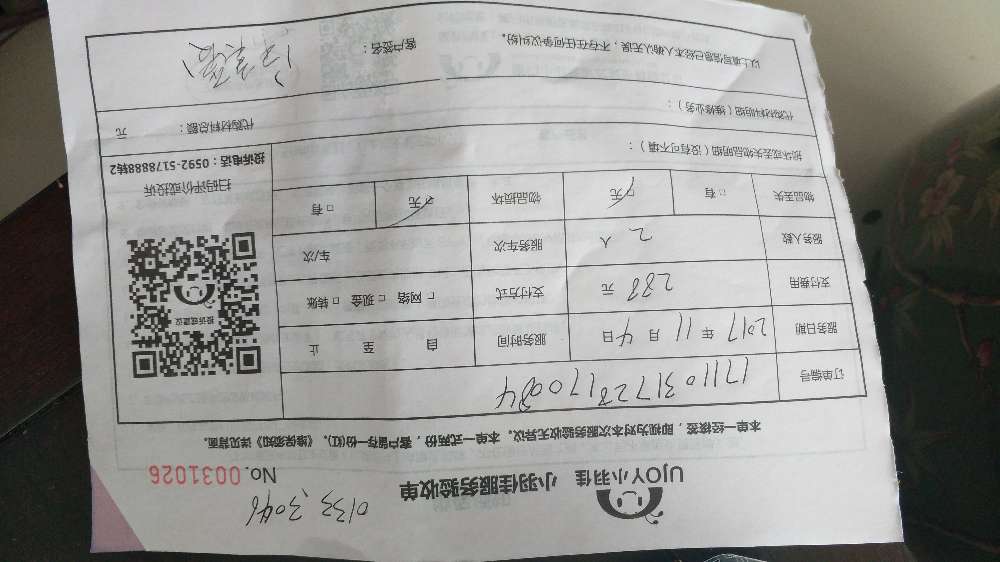 UJOY小羽佳 小羽佳服务验收单
No. 0031026
本单一经接签，即视为对本次服务验收无异议。本单一式两份，客户留存一份(红)。《维保须知》详见背面。
订单编号 17110317281700
服务日期 2017 年 11 月 4 日 服务时间 自 至 止
支付费用 288 元 支付方式 □ 网络 □ 现金 □ 转账
服务人数 2 人 服务车次 车/次
物品丢失 □ 有 □ 无 物品损坏 □ 无 □ 有
损坏或丢失物品明细（没有可不填）：
代购材料明细（维修业务）：
代购材料总额： 元
以上填写信息已经本人确认无误，不存在任何争议纠纷。
客户签名：
投诉或建议
扫码评价或投诉
投诉电话：0592-5178888转2